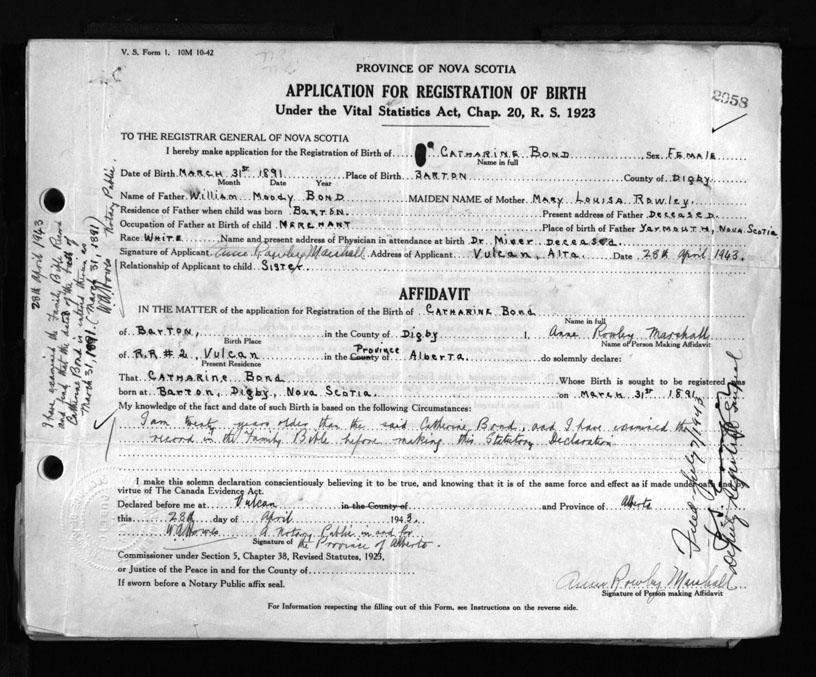 V. S. Form 1. 10M 10-42
PROVINCE OF NOVA SCOTIA
APPLICATION FOR REGISTRATION OF BIRTH
Under the Vital Statistics Act, Chap. 20, R. S. 1923
2958
TO THE REGISTRAR GENERAL OF NOVA SCOTIA
I hereby make application for the Registration of Birth of CATHARINE BOND, Sex FEMALE
Name in full
Date of Birth MARCH 31ST 1891 Place of Birth BARTON County of DIGBY
Month Date Year
Name of Father William Moody BOND MAIDEN NAME of Mother MARY LOUISA ROWLEY.
Residence of Father when child was born BARTON. Present address of Father DECEASED.
Occupation of Father at Birth of child MERCHANT Place of birth of Father YARMOUTH, NOVA SCOTIA
Race WHITE Name and present address of Physician in attendance at birth Dr. Miner deceased.
Signature of Applicant Anne Rowley Marshall Address of Applicant Vulcan, Alta. Date 28th April 1943.
Relationship of Applicant to child SISTER
AFFIDAVIT
IN THE MATTER of the application for Registration of the Birth of CATHARINE BOND
Name in full
of BARTON, in the County of Digby I, Anne Rowley Marshall
Birth Place Name of Person Making Affidavit
of R.R #2, Vulcan in the County Province of Alberta. do solemnly declare:
Present Residence
That CATHARINE BOND Whose Birth is sought to be registered was
born at Barton, Digby, Nova Scotia. on MARCH 31ST 1891
My knowledge of the fact and date of such Birth is based on the following Circumstances:
I am twenty years older than the said Catherine Bond, and I have examined the
record in the Family Bible before making this Statutory Declaration
I make this solemn declaration conscientiously believing it to be true, and knowing that it is of the same force and effect as if made under oath and by
virtue of The Canada Evidence Act.
Declared before me at Vulcan in the County of and Province of Alberta
this 28th day of April 1943.
W A Howes A Notary Public in and for
Signature of the Province of Alberta.
Commissioner under Section 5, Chapter 38, Revised Statutes, 1923,
or Justice of the Peace in and for the County of
If sworn before a Notary Public affix seal.
Anne Rowley Marshall
Signature of Person making Affidavit
For Information respecting the filling out of this Form, see Instructions on the reverse side.
28th April 1943
I have examined the Family Bible Record
and find that the date of the birth of
Catherine Bond is entered therein
March 31, 1891. (March 31, 1891)
W A Howes Notary Public.
Filed July 7/1943
Deputy Registrar General